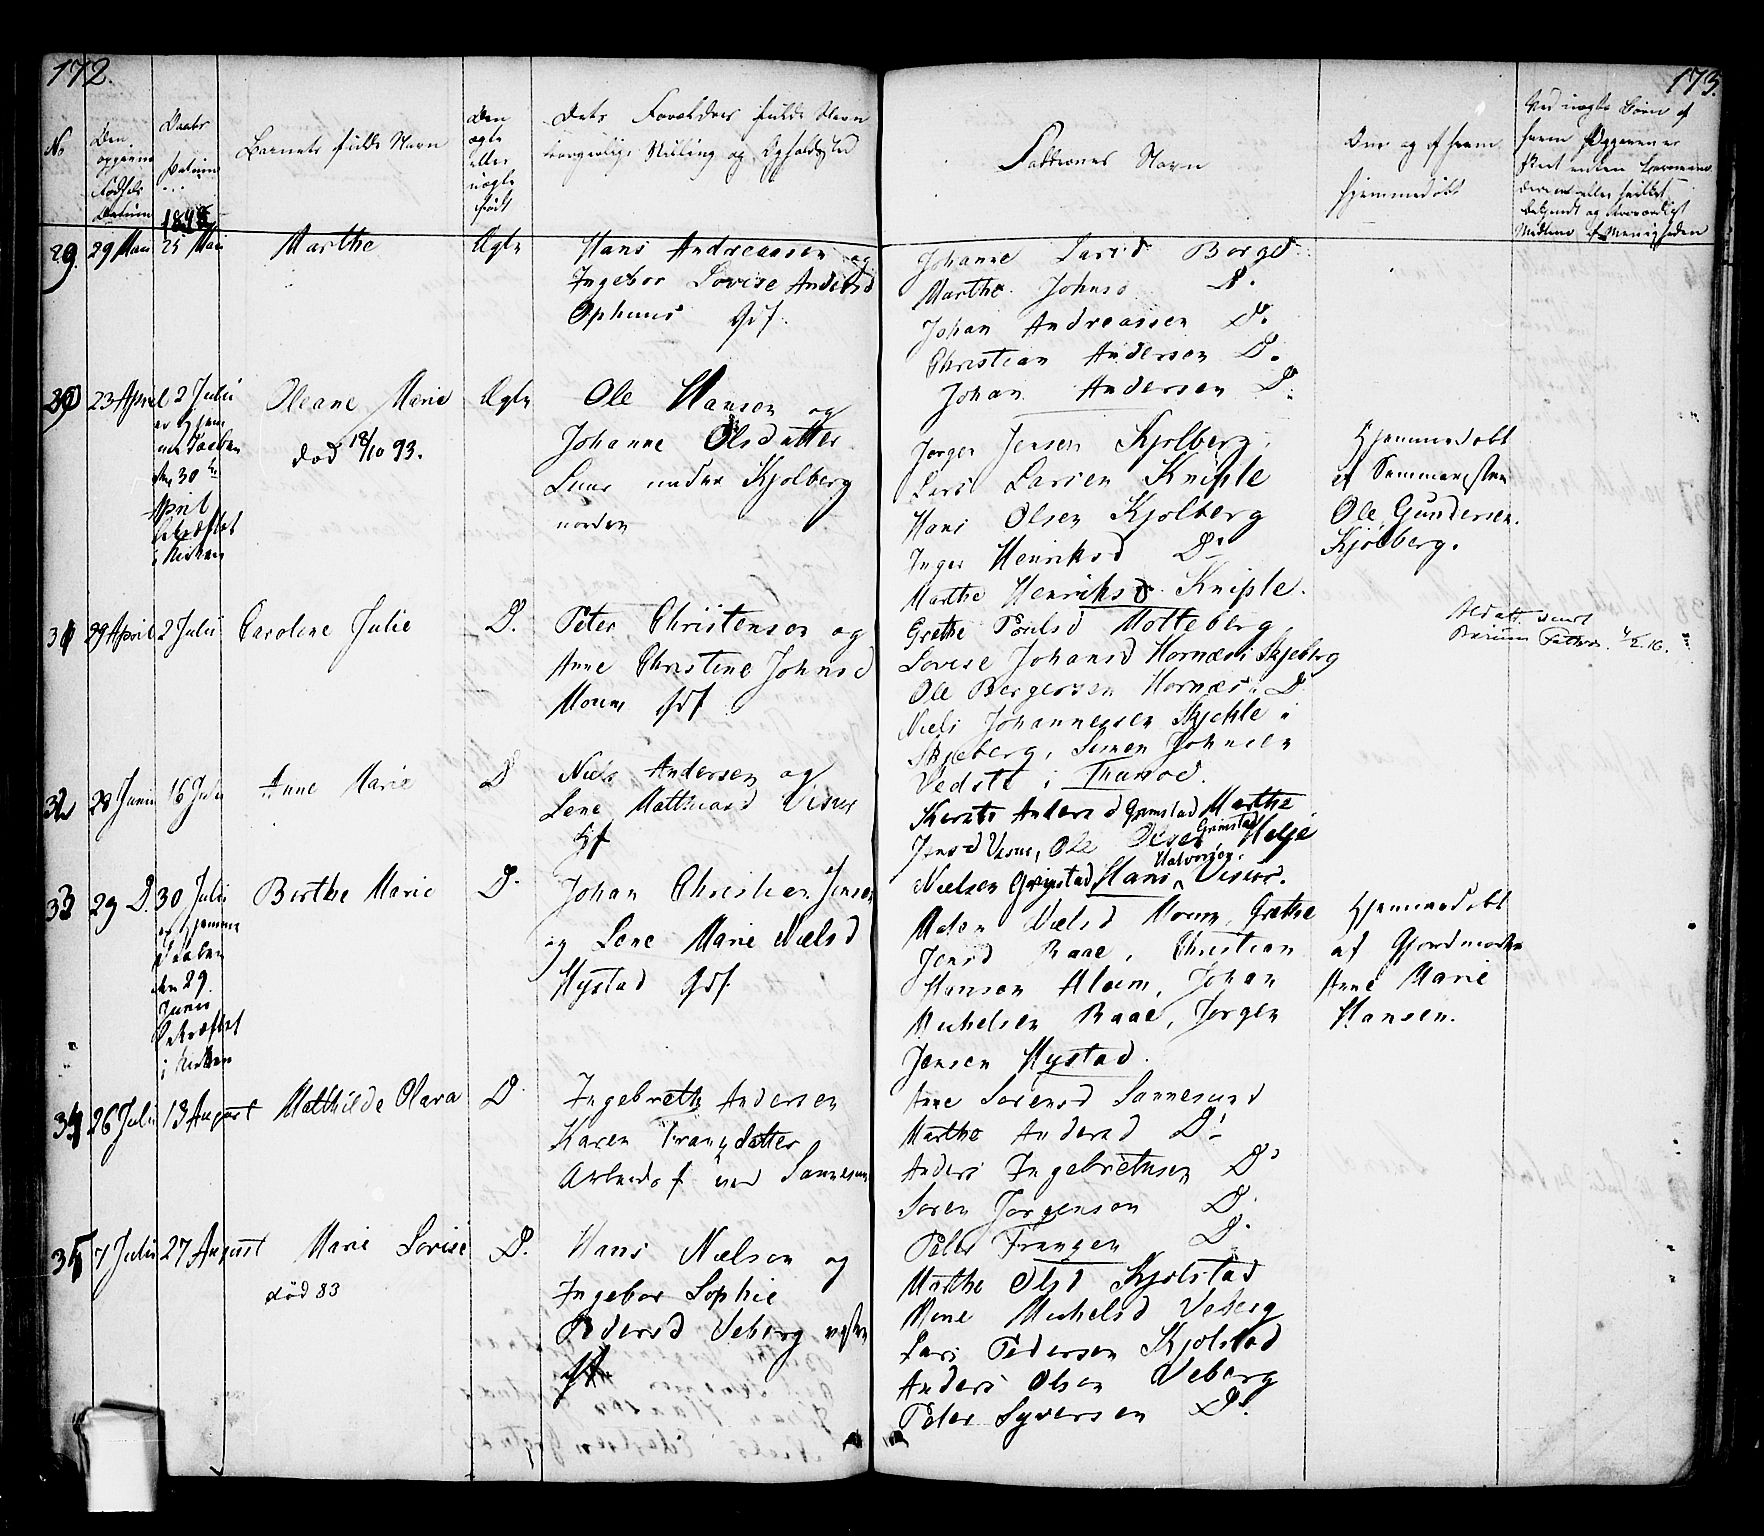 172.
173.
No
Den opgivne Fødsels Datum
Daabs Datum
Barnets fulde Navn
Den ægte eller uægte født
Dets Forældres fulde Navn
borgerlige Stilling og Opholdsted
Faddernes Navn
Om og af hvem
hjemmedøbt
Ved uægte Børn af
29 29 Mai 25 Mai Marthe Ægte Hans Andreassen og
Ingebor Lovise Andersd
Ophuus Gdf.
Johanne Larsd Borge
Marthe Johnsd D.
Johan Andreassen D.
Christian Andersen D.
Johan Andersen D.
30 23 April 2 Julii Oleane Marie Ægte Ole Hansen og
død 18/10 93.
Johanne Olsdatter
under Kjølberg
nordre
den 30
April
Jørgen Jensen Kjølberg,
Lars Larsen Kniple
Hans Olsen Kjølberg
Inger Henriksd D.
Marthe Henriksd Kniple.
Hjemmedøbt
af Seminaristen
Ole Gundersen
Kjølberg.
31 29 April 2 Julii Caroline Julie D. Peter Christensen og
Anne Christine Johnsd
Moum Gdf
Grethe Poulsd Motteberg,
Lovise Johansd Hornæs i Skjeberg
Ole Børgersen Hornæs i D
Niels Johannessen Skjekle i
Skjeberg, Simen Johnsen
Vedste i Thunød.
32 28 Junii 16 Julii Anne Marie D Niels Andersen og
Lene Matthiasd Visur
Hf
Kersti Andersd Grimstad Marthe
Jensd Visur, Ole Olsen Grimstad Helje
Nielsen Grimstad, Hans Halvorsen, Visur.
33 29 D. 30 Julii Berthe Marie D. Johan Christian Jensen
og Lene Marie Nielsd
Hystad Gdf.
den 29.
Junii
Maren Nielsd Moum, Grethe
Jensd Raae, Christian
Hansen Alum, Johan
Michelsen Raae, Jørgen
Jensen Hystad.
Hjemmedøbt
af Gjordmoder
Anne Marie
Hansen.
34 26 Julii 13 August Mathilde Olava D. Ingebreth Andersen
Karen Frantzdatter
Arbeidsf ved Sannesund
Anne Sørensd Sannesund
Marthe Andersd D.
Anders Ingebrethsen D
Søren Jørgensen D.
Peter Frantzen D.
35 7 Julii 27 August Marie Lovise D. Hans Nielsen og
død 83
Ingebor Sophie
Pedersd Veberg vestre
Marthe Olsd Kjølstad
Rene Michelsd Veberg
Lars Pedersen Kjølstad
Anders Olsen Veberg
Peter Syversen D.